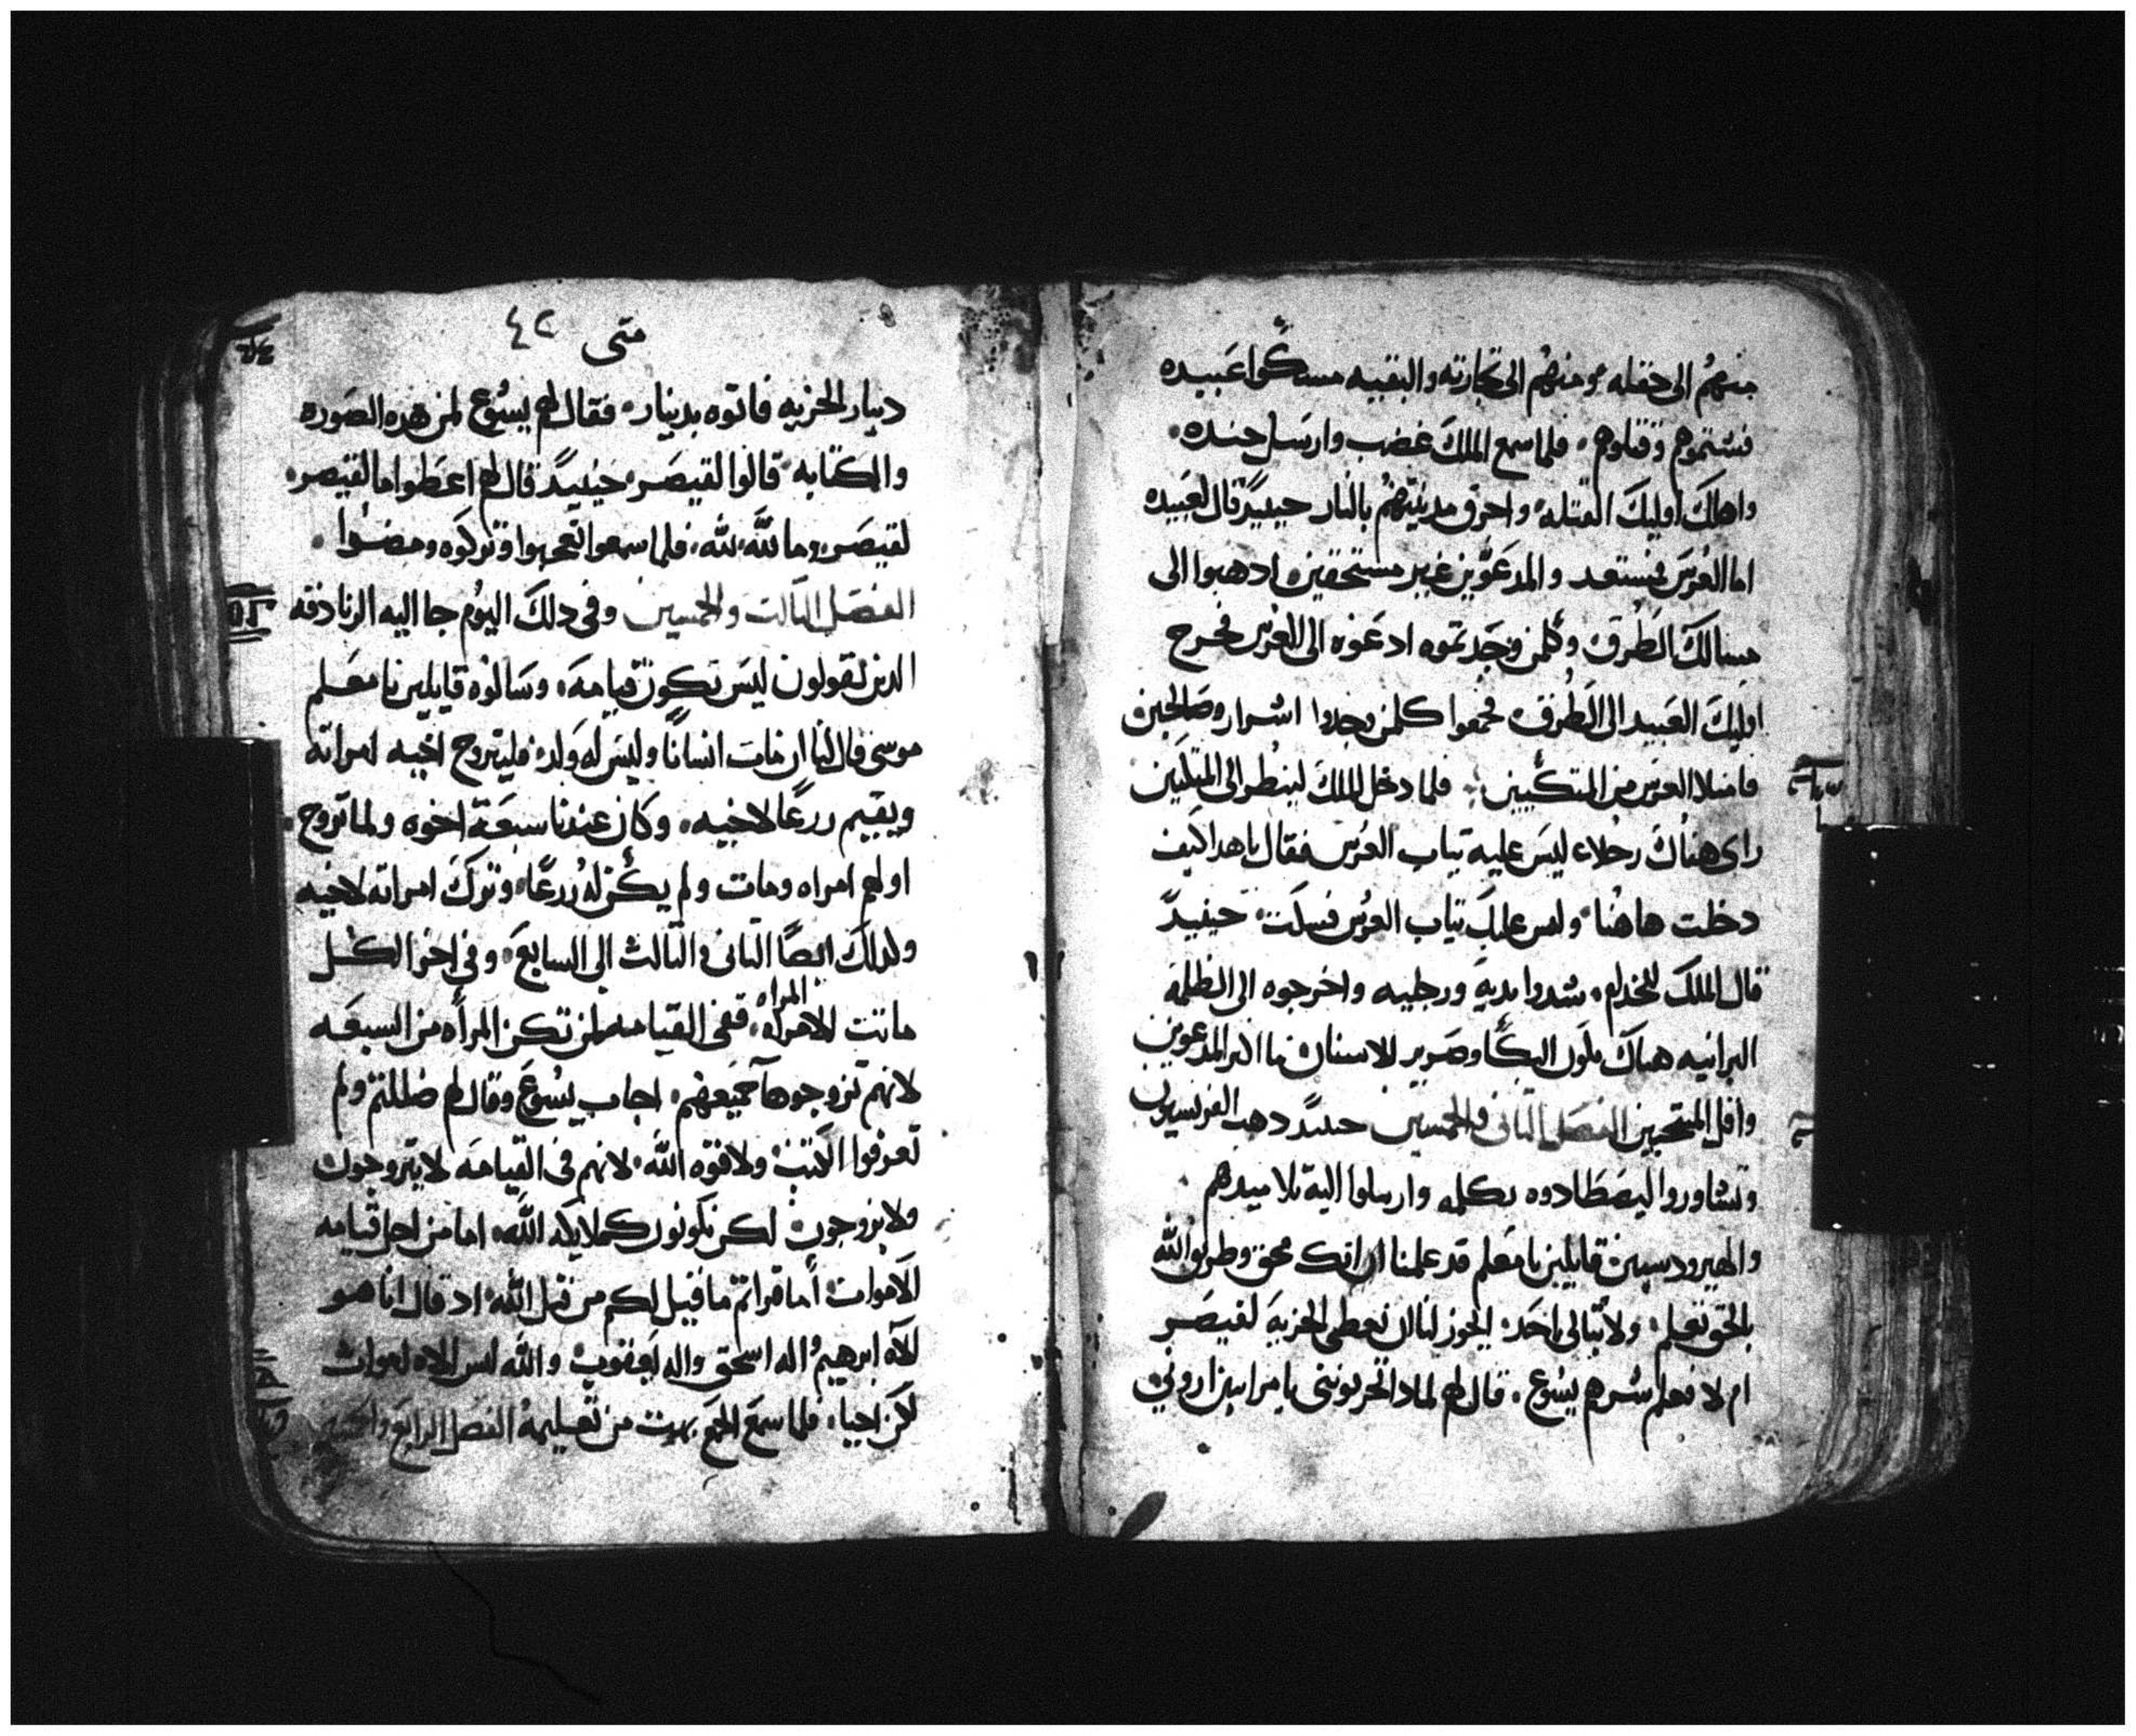 منهم الى حقله ومنهم الى تجارته والبقيه مسكوا عبيده
فشتموهم وقتلوهم فلما سمع الملك غضب وارسل جنده
واهلك اوليك القتله واحرق مدينتهم بالنار حينيدً قال لعبيده
اما العرس فمستعد والمدعوين غير مستحقين ادهبوا الى
مسالك الطرق وكلمن وجدتموه ادعوه الى العرس فخرج
اوليك العبيد الى الطرق فجمعوا كلمن وجدوا اشرار وصالحين
فامتلا العرس من المتكيين فلما دخل الملك لينظر الى المتكين
راى هناك رجلاً ليس عليه تياب العرس فقال يا هدا كيف
دخلت هاهنا وليس عليك تياب العرس فسكت حينيدً
قال الملك للخدام شدوا يديه ورجليه واخرجوه الى الظلمه
البرانيه هناك يكون البكا وصرير الاسنان ما اكتر المدعوين
واقل المنتخبين الفصل التانى والخمسين حينيدً دهب الفرنسيون
وتشاوروا ليصطادوه بكلمه وارسلوا اليه تلاميدهم
والهيرودسيين قايلين يا معلم قد علمنا ان انك محق وطريق الله
بالحق تعلم ولا تبالى باحد ايجوز لنا ان نعطى الجزيه لقيصر
ام لا فعلم شرهم يسوع قال لهم لمادا تجربونى يا مرايين ارونى
متى ٤٢
دينار الجزيه فاتوه بدينار فقال لهم يسوع لمن هده الصوره
والكتابه قالوا لقيصر حينيدً قال لهم اعطوا ما لقيصر
لقيصر وما لله لله فلما سمعوا تعجبوا وتركوه ومضوا
الفصل التالت والخمسين وفى دلك اليوم جا اليه الزنادقه
الدين يقولون ليس تكون قيامه وسالوه قايلين يا معلم
موسى قال لنا ان مات انسانا وليس له ولد فليتزوج اخيه امراته
ويقيم زرعًا لاخيه وكان عندنا سبعة اخوه ولما تزوج
اولهم امراه ومات ولم يكن له زرعًا وترك امراته لاخيه
وكدلك ايضًا التانى والتالث الى السابع وفى اخر الكل
ماتت الامراه المراه ففى القيامه لمن تكن المرأه من السبعه
لانهم تزوجوها جميعهم اجاب يسوع وقال لهم ضللتم ولم
تعرفوا الكتب ولا قوه الله لانهم فى القيامه لا يتزوجون
ولا يزوجون لكن يكونون كملايكه الله اما من اجل قيامه
الاموات أما قراتم ما قيل لكم من قبل الله اد قال انا هو
الاه ابرهيم اله اسحق واله يعقوب والله ليس الاه اموات
لكن احيا فلما سمع الجمع بهت من تعليمه الفصل الرابع